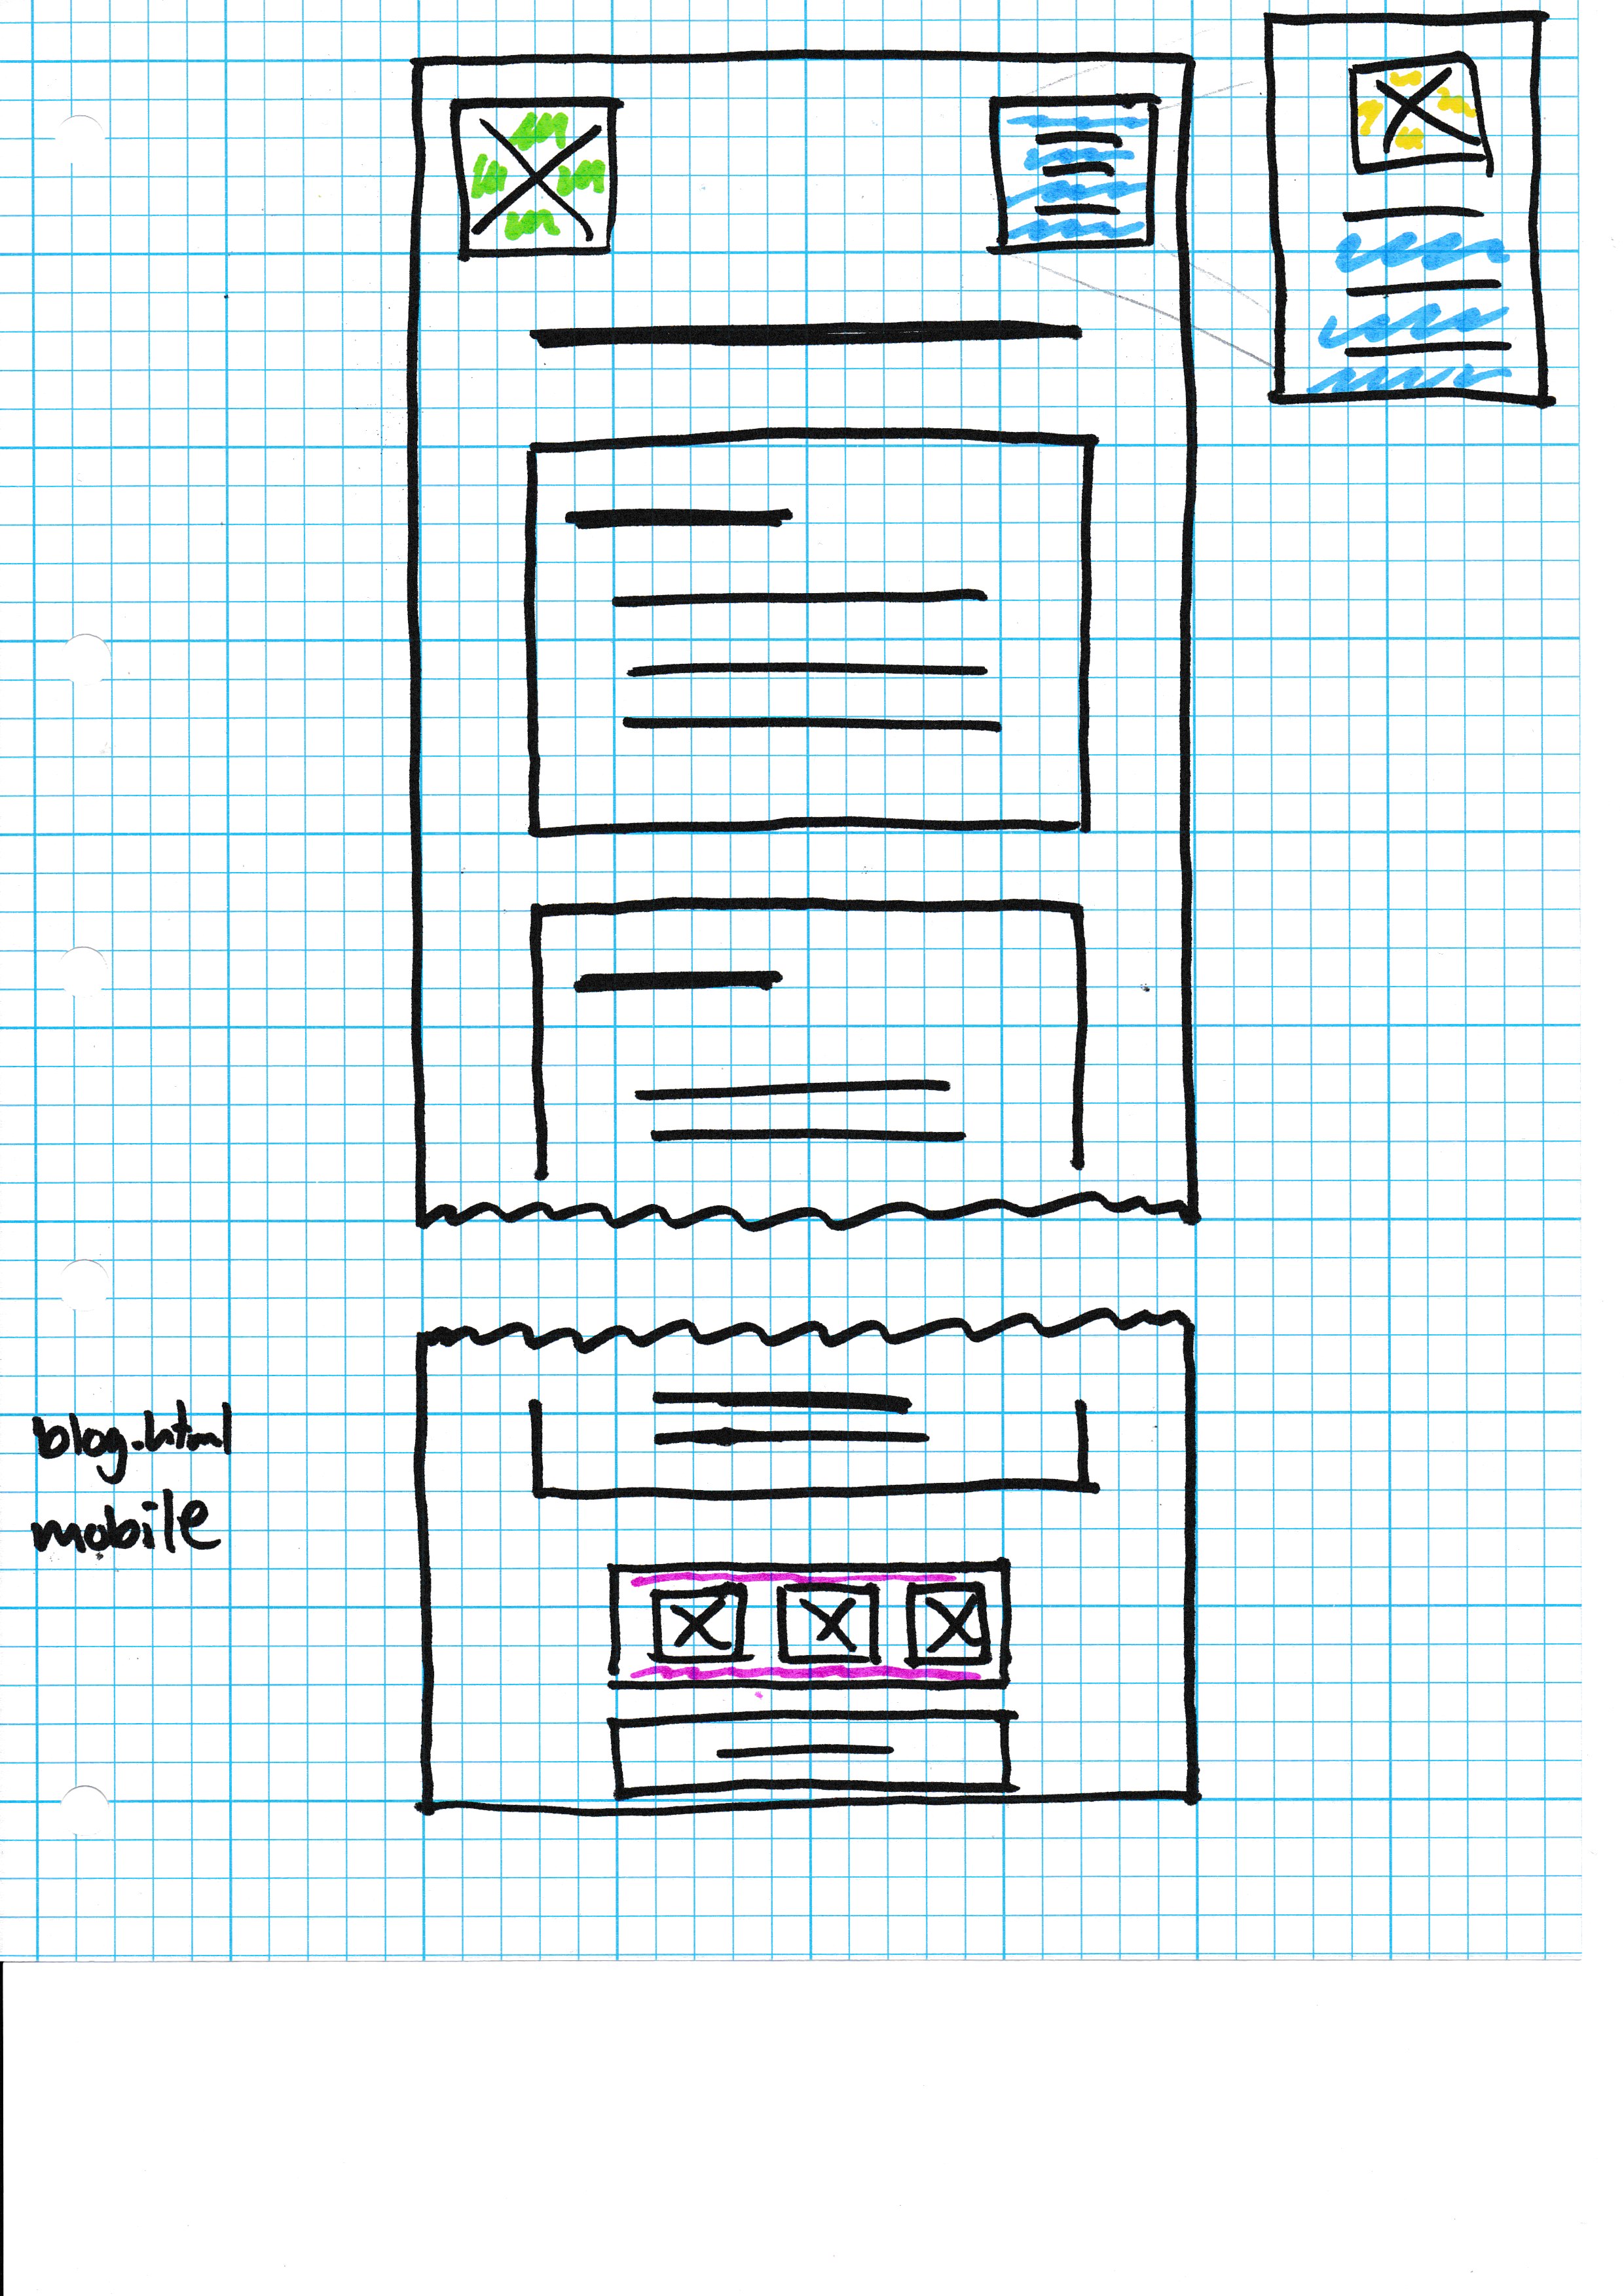 blog.html
mobile